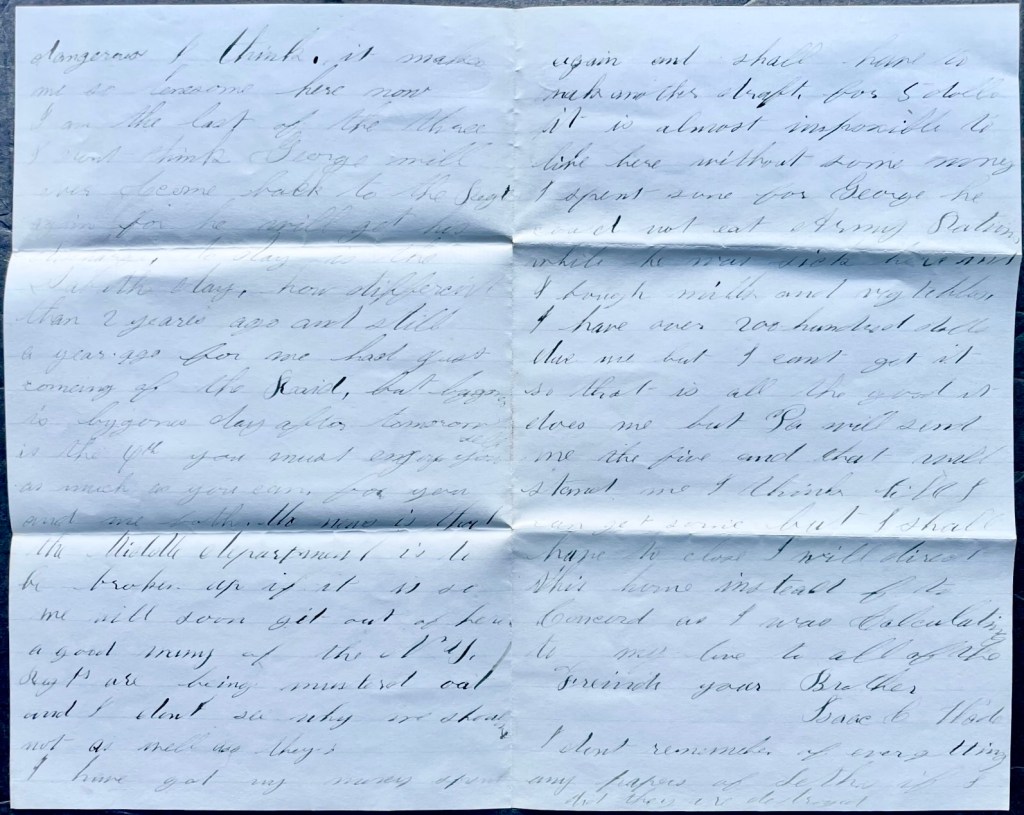 dangerous I think, it makes
me so lonesome here now
I am the last of the three
I dont think George will
ever be come back to the Regt
again for he will get his
to day is the
Sabbath day, how different
than 2 years ago and still
a year ago for me had just
coming of the Raid, but bygone
is bygones day after tomorrow
is the 4th you must enjoy your self
as much as you can, for you
and me both. the news is that
the Middle department is to
be broken up if it is so
we will soon get out of here
a good many of the N.Y.
Regts are being mustered out
and I dont see why we should
not as well as they
I have got my money spent
again and shall have to
another draft, for 5 dolls
it is almost impossible to
live here without some money
I spent some for George he
could not eat Army Rations
while he was sick here and
I bough milk and vegtables,
I have over 200 hundred dolls
due me but I cant get it
so that is all the good it
does me but Pa will send
me the five and that will
stand me I think till I
can get some but I shall
have to close I will direct
this home insteat of to
Concord as I was Calculating
to my love to all of the
Freinds your Brother
Isaac C
I dont remember of every thing
any papers of Seths if I
did they are destroyed